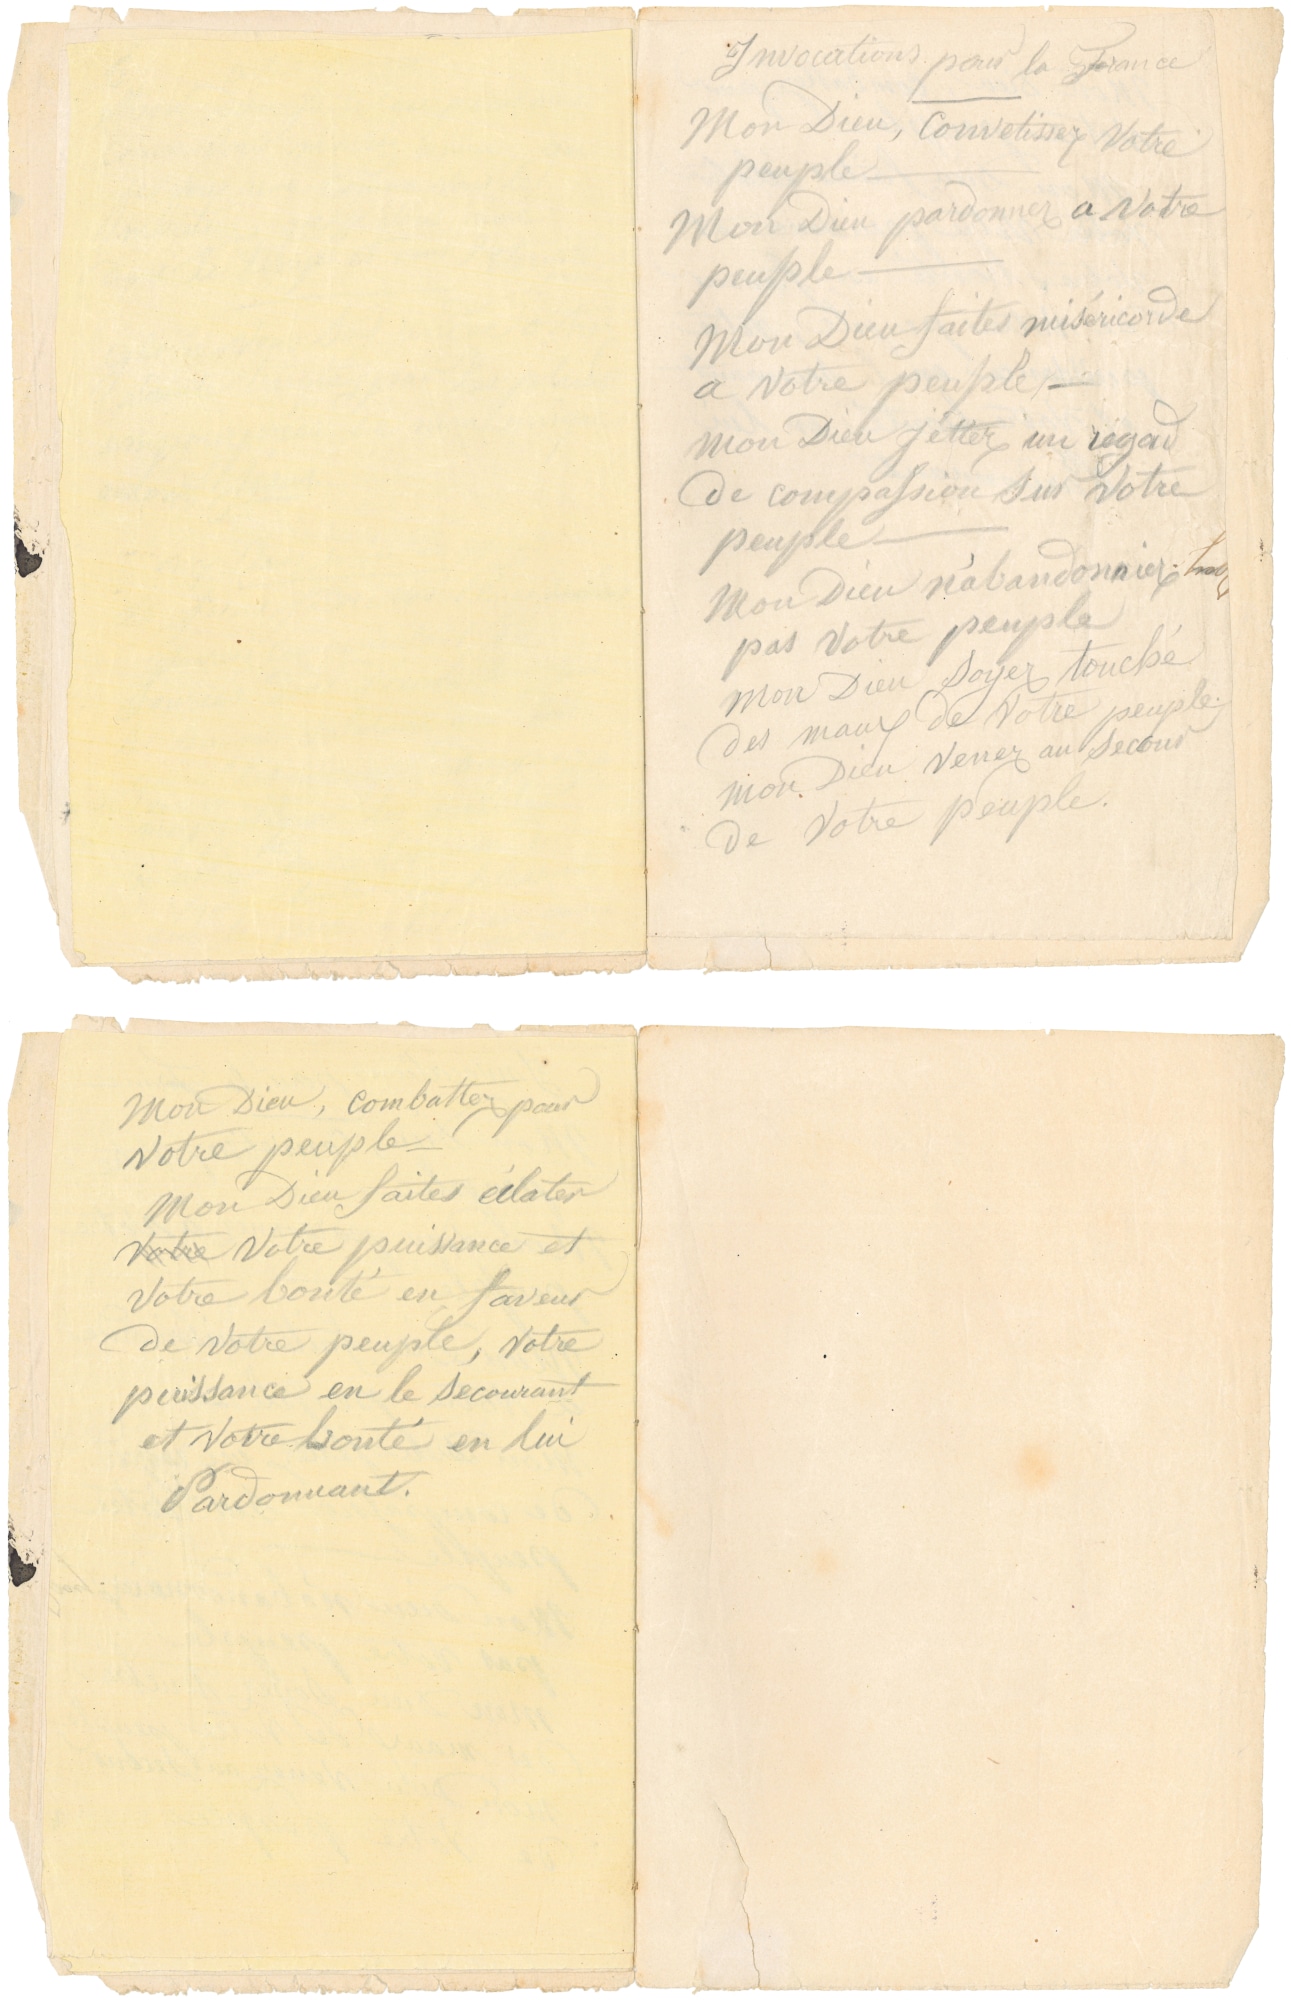 Invocations pour la France
Mon Dieu, Convetissez Votre
peuple
Mon Dieu pardonnez a Votre
peuple
Mon Dieu faites miséricorde
a Votre peuple
mon Dieu jettez un regad
de compassion sur Votre
peuple
Mon Dieu n'abandonniez
pas Votre peuple
mon Dieu Soyez touché
des maux de Votre peuple
mon Dieu Venez au Secour
de Votre peuple.
Mon Dieu, combattez pour
Votre peuple
Mon Dieu faites éclater
Votre Votre puissance et
Votre bonté en faveur
de Votre peuple, Votre
puissance en le Secourant
et Votre bonté en lui
Pardonnant.